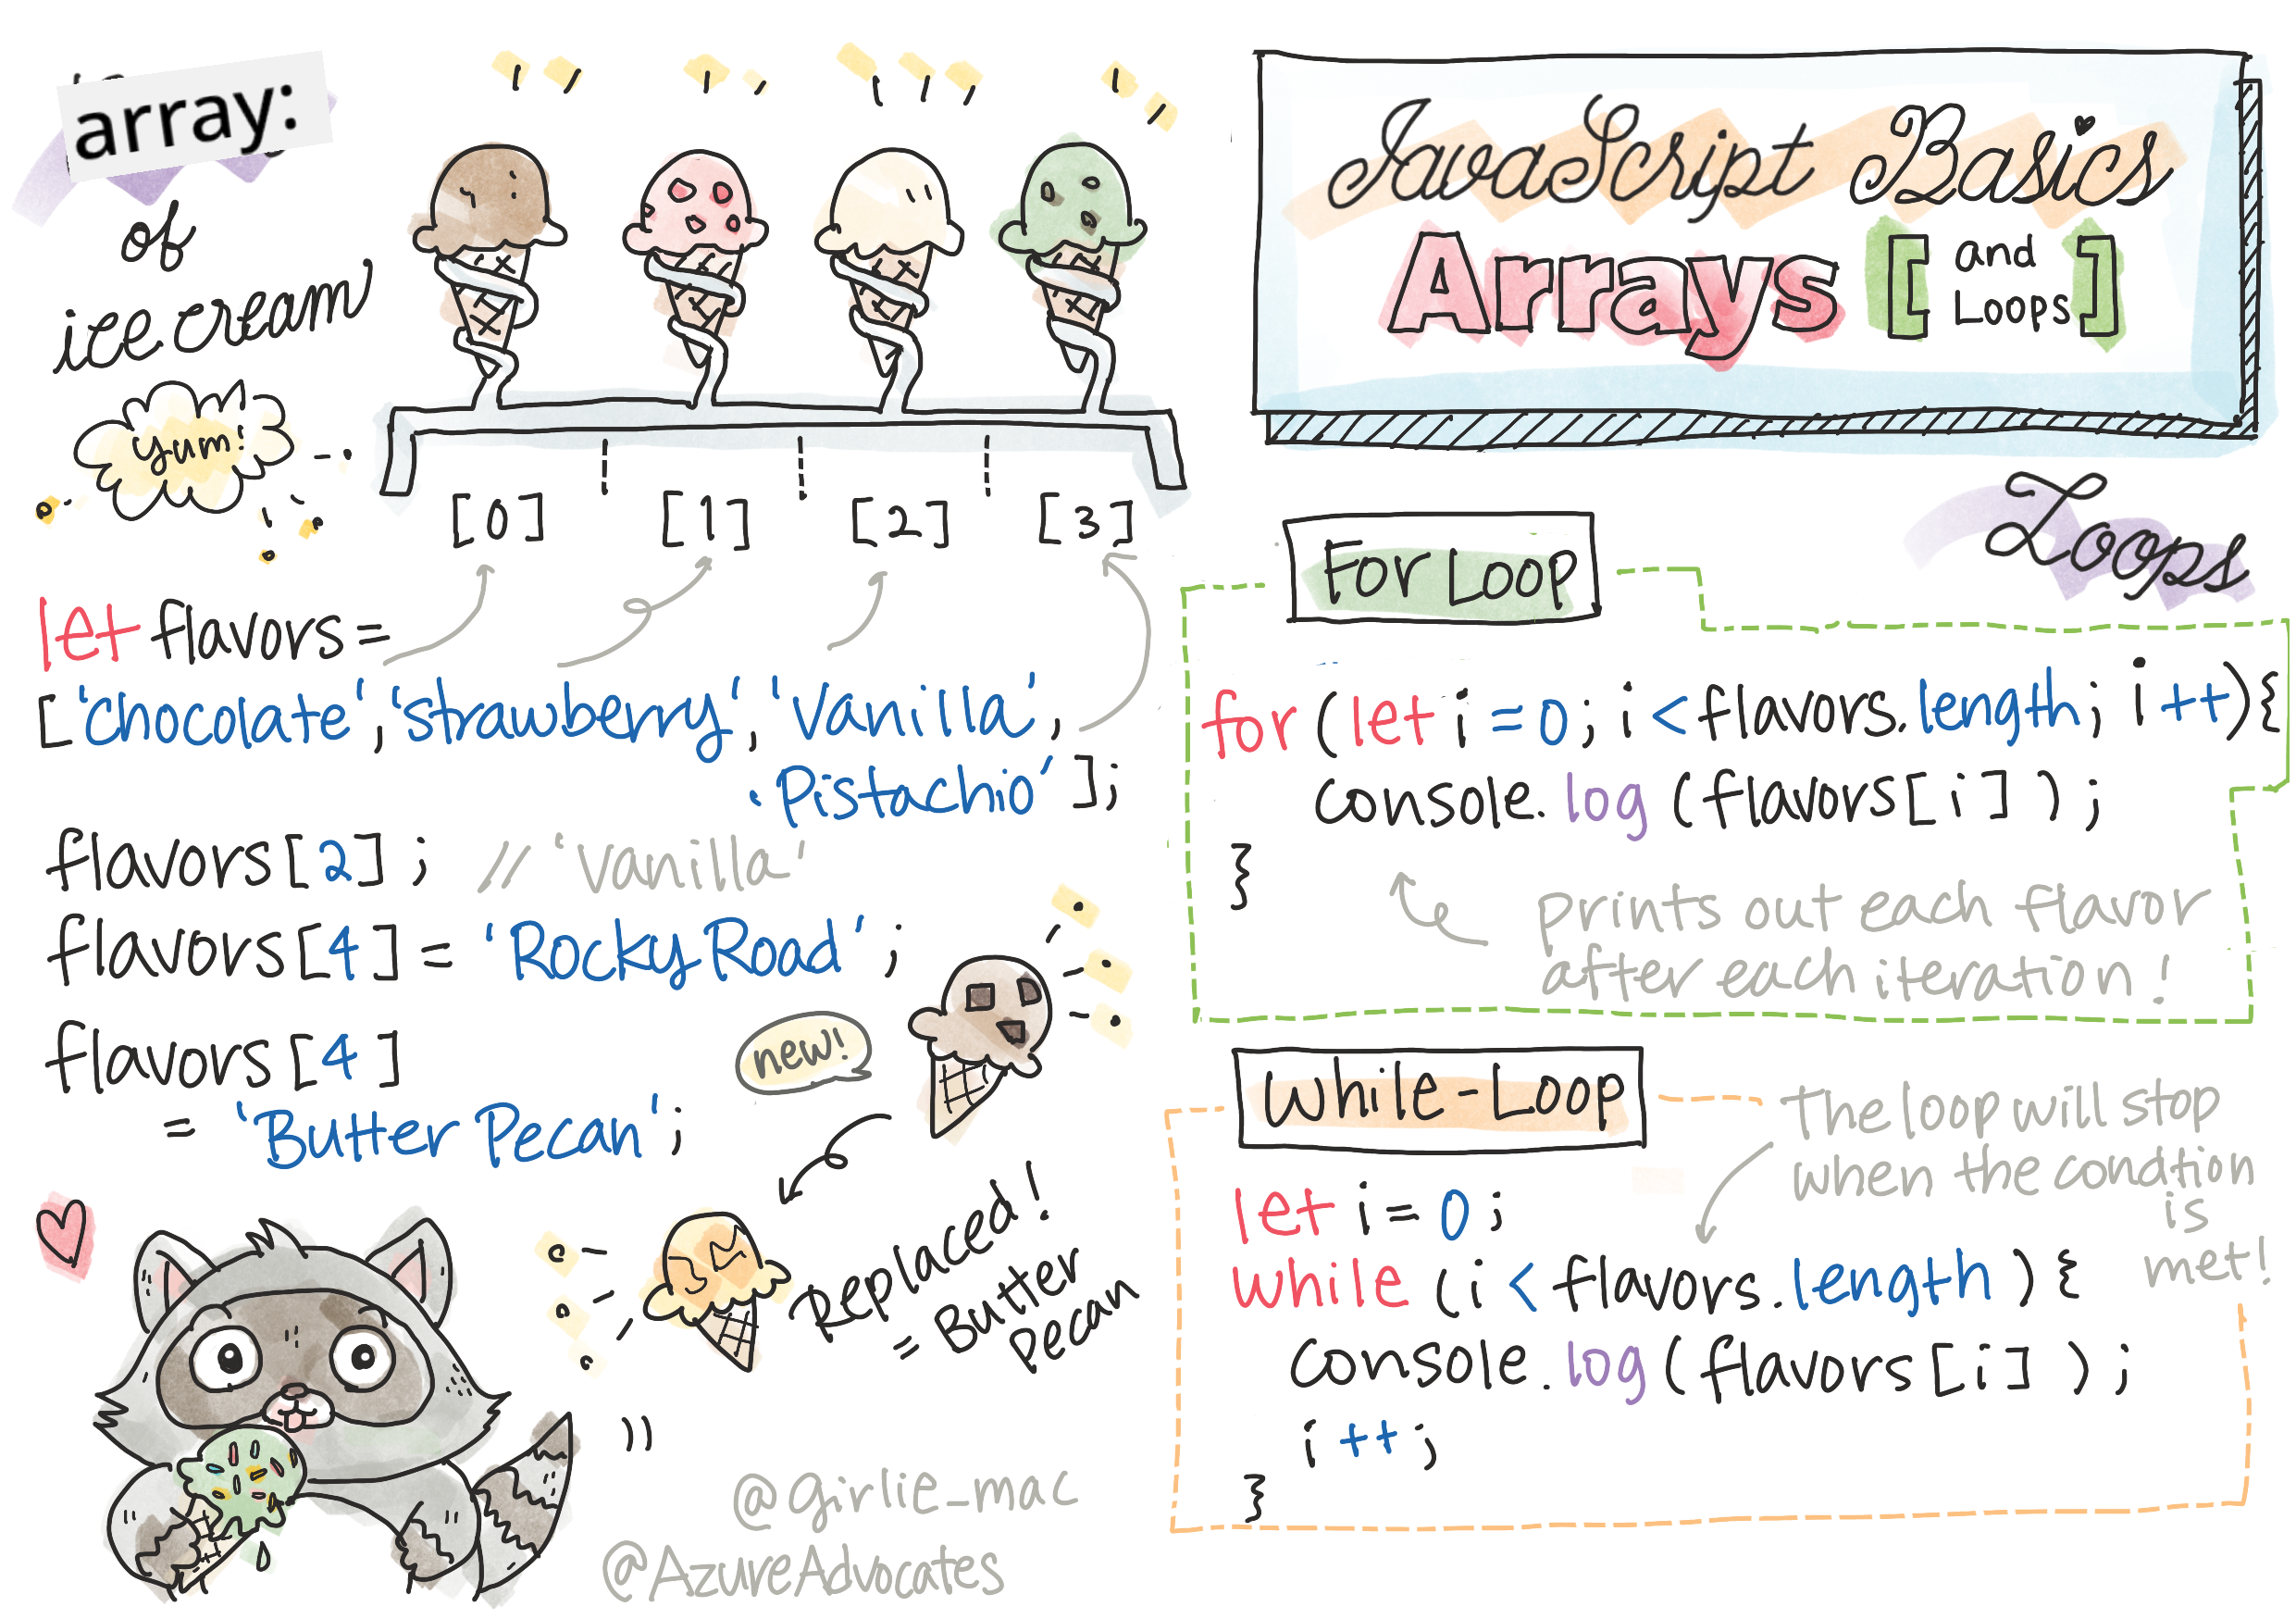 array:
of
ice cream
yum!
[0] [1] [2] [3]
let flavors =
['chocolate', 'strawberry', 'Vanilla',
'Pistachio'];
flavors[2]; // 'Vanilla'
flavors[4] = 'Rocky Road';
flavors[4]
= 'Butter Pecan';
new!
Replaced!
= Butter
Pecan
@girlie_mac
@AzureAdvocates
JavaScript Basics
Arrays [and
Loops]
Loops
For Loop
for (let i = 0; i < flavors.length; i++){
console.log (flavors[i]);
}
prints out each flavor
after each iteration!
While-Loop
The loop will stop
when the condtion
is
met!
let i = 0;
while (i < flavors.length) {
console.log(flavors[i]);
i++;
}